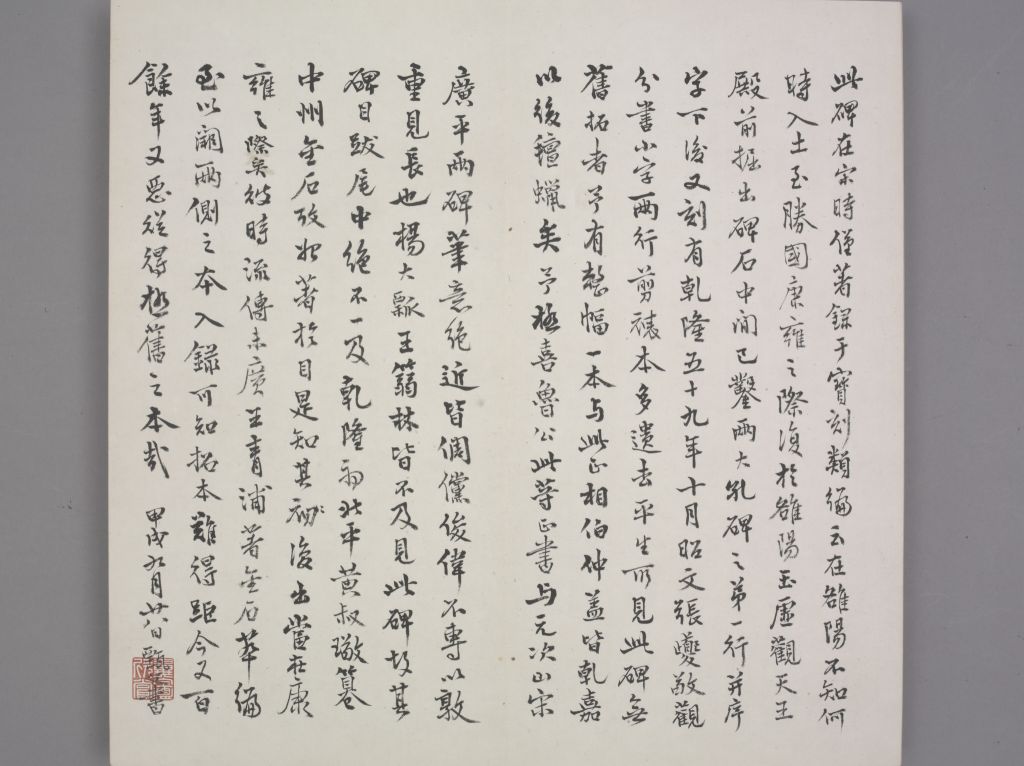 此碑在宋時僅著錄于寶刻類編云在雒陽不知何
時入土至勝國康雍之際復於雒陽玉虛觀天王
殿前掘出碑石中間已鑿兩大孔碑之第一行并序
字下後又刻有乾隆五十九年十月昭文張燮敬觀
分書小字兩行剪裱本多遺去平生所見此碑無
舊拓者予有整幅一本与此正相伯仲蓋皆乾嘉
以後氊蠟矣予極喜魯公此等正書与元次山宋
廣平兩碑筆意絕近皆倜儻俊偉不專以敦
重見長也楊大瓢王蒻林皆不及見此碑故其
碑目跋尾中絕不一及乾隆初北平黃叔璥纂
中州金石攷始著於目是知其初復出當在康
雍之際矣彼時流傳未廣王青浦著金石萃編
至以闕兩側之本入錄可知拓本難得距今又百
餘年又惡從得極舊之本哉 甲戌九月廿八日 書